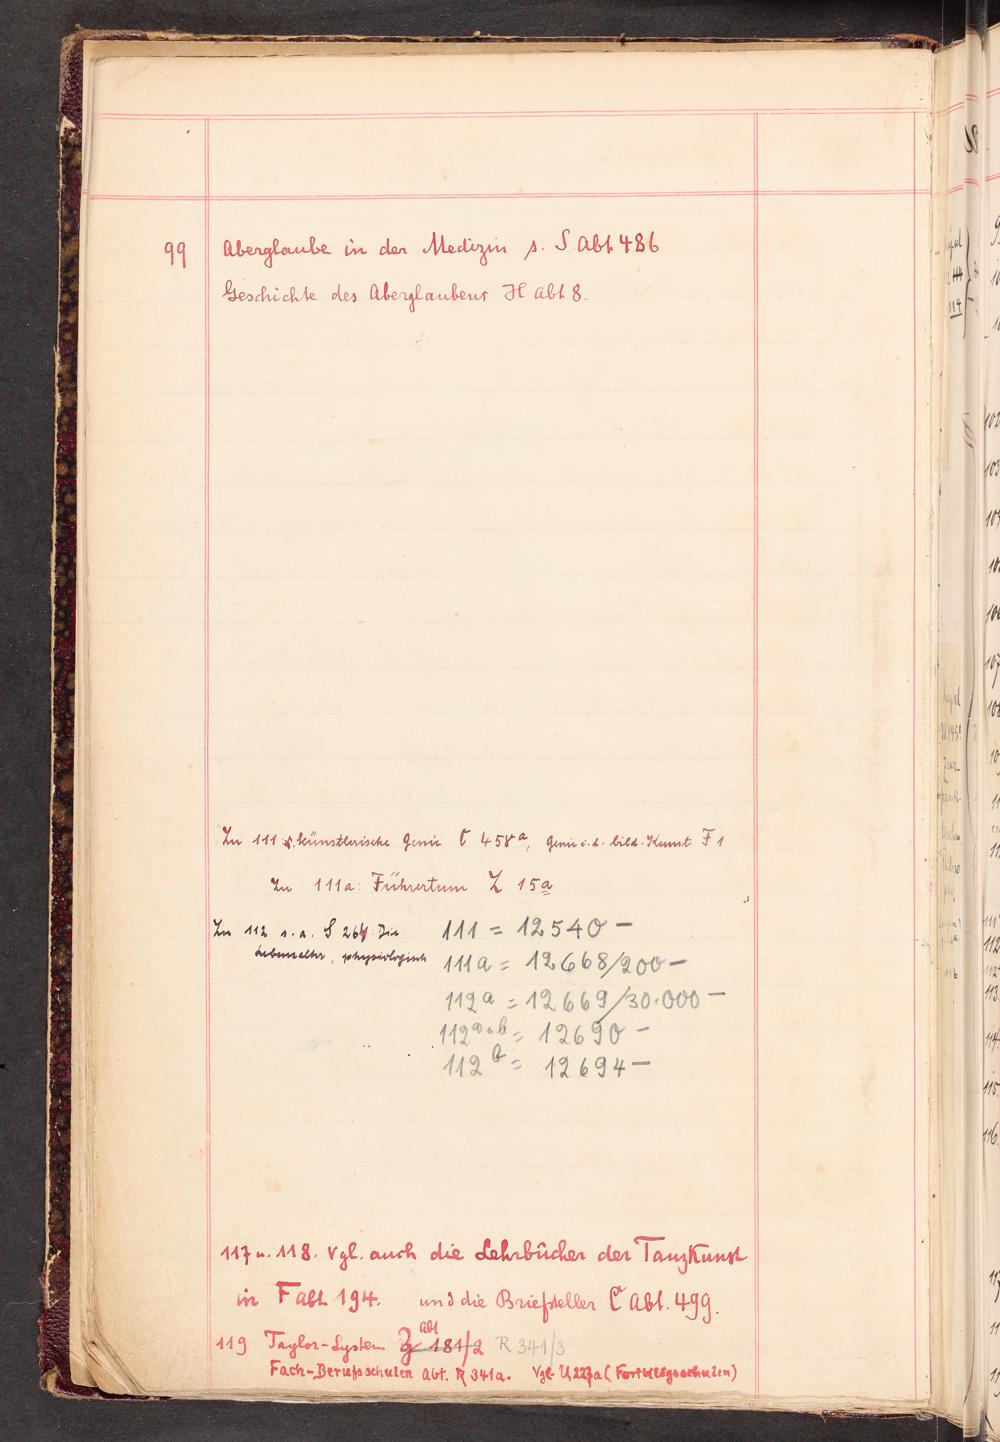 99 Aberglaube in der Medizin s. S Abt 486
Geschichte des Aberglaubens H Abt 8.
Zu 111 s. künstlerische Genie C 458a, Genie i. d. bild. Kunst F 1
Zu 111a: Führertum Z 15a
Zu 112 s. a. S 264 Die
Lebensalter, physiologisch
111 = 12540 —
111a = 12668/200 —
112a = 12669/30.000 —
112a+b = 12690 —
112b = 12694 —
117 u. 118. Vgl. auch die Lehrbücher der TanzKunst
in F Abt 194. und die Briefsteller C Abt. 499.
119 Taylor-System Abt 181/2 R 341/3
Fach-Berufsschulen Abt. R 341a. Vgl. U 227a (Fortbldgsschulen)